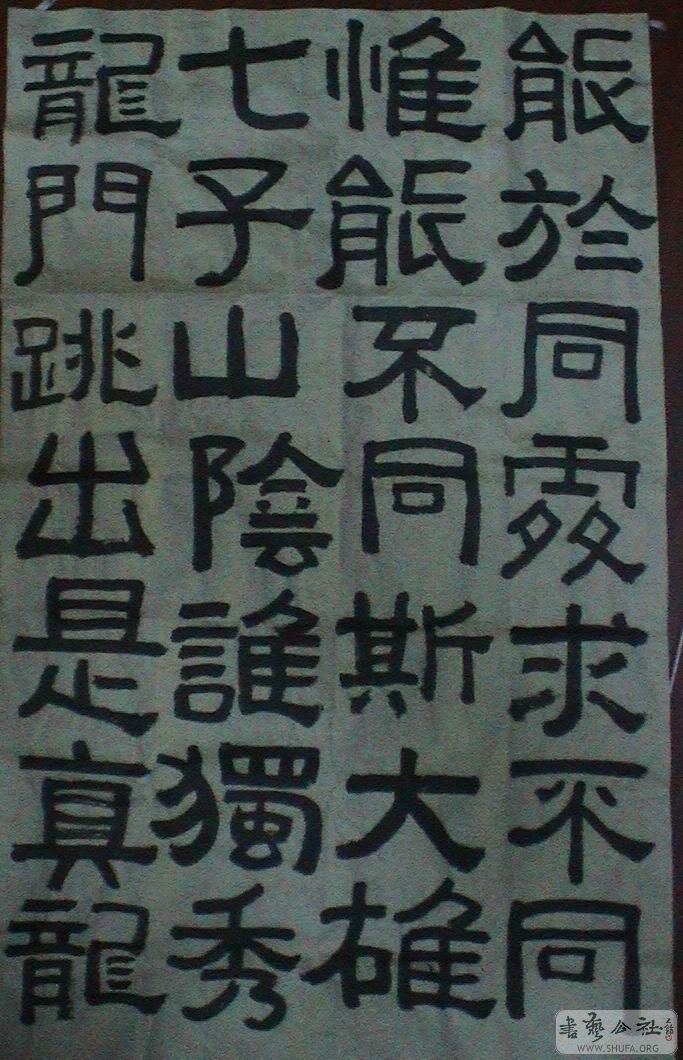 能於同處求不同
惟能不同斯大雄
七子山陰誰獨秀
龍門跳出是真龍
書藝公社
WWW.SHUFA.ORG